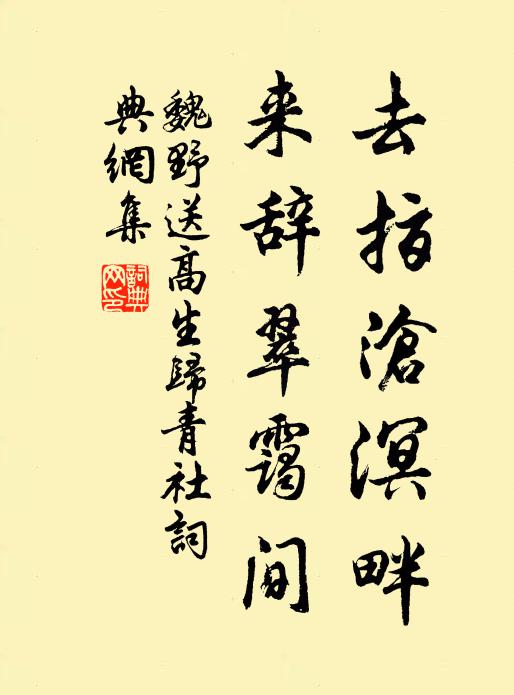 去指滄溟畔
来辞翠靄间
魏野送高生歸青社詞
典網集
詞典网印